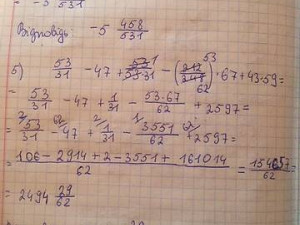 -5 531
Відповідь: -5 458/531
5) 53/31 - 47 + - (53/62) · 67 + 43 · 59 =
= 53/31 - 47 + 1/31 - 53·67/62 + 2597 =
= 53/31 - 47 + 1/31 - 3551/62 + 2597 =
= 106 - 2914 + 2 - 3551 + 161014/62 = 154657/62 =
= 2494 29/62